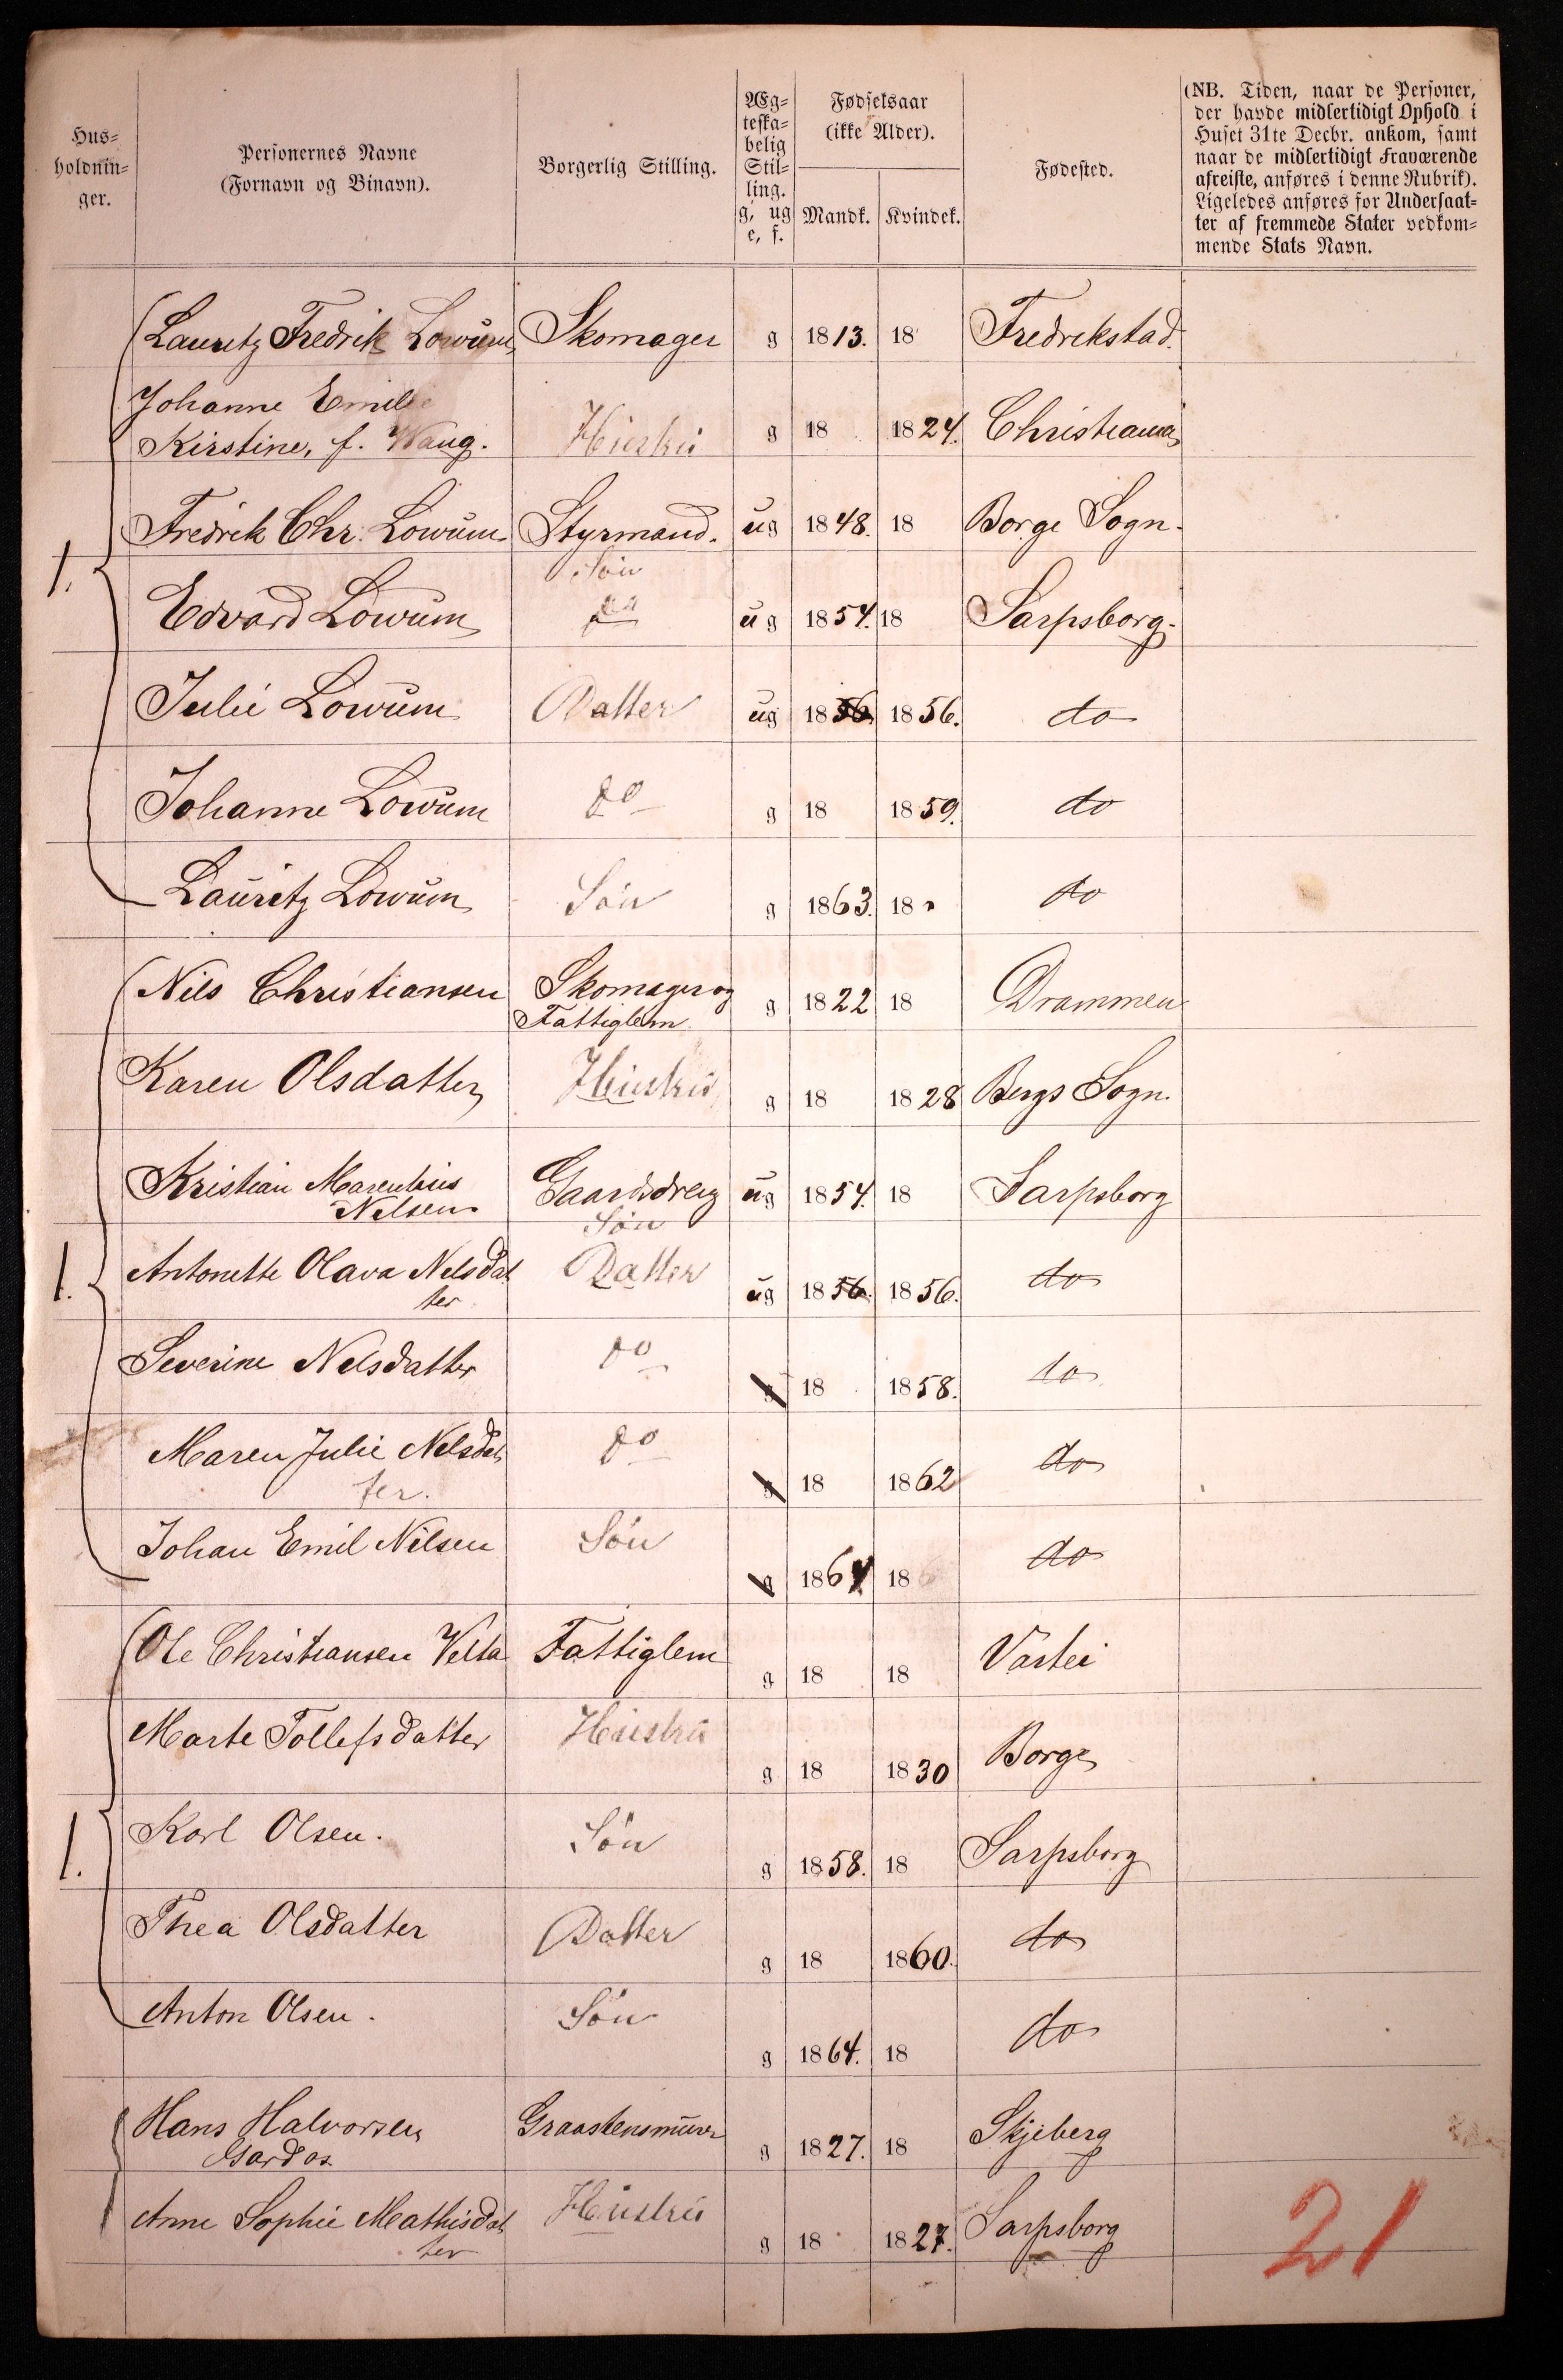 Hus-
holdnin-
ger.
Personernes Navne
(Fornavn og Binavn).
Borgerlig Stilling.
Æg-
teska-
belig
Stil-
ling.
g, ug
e, f.
Fødselsaar
(ikke Alder).
Mandk. Kvindek.
Fødested.
(NB. Tiden, naar de Personer,
der havde midlertidigt Ophold i
Huset 31te Decbr. ankom, samt
naar de midlertidigt Fraværende
afreiste, anføres i denne Rubrik).
Ligeledes anføres for Undersaat-
ter af fremmede Stater vedkom-
mende Stats Navn.
Lauritz Fredrik Lowum Skomager g 1813. 18 Fredrekstad.
Johanne Emilie
Kirstine, f. Waug. Hustru g 18 1824. Christiania
1. Fredrik Chr. Lowum. Styrmand. ug 1848. 18 Borge Sogn.
Søn
Edvard Lowum do ug 1854. 18 Sarpsborg.
Julie Lowum Datter ug 1856 1856. do
Johanne Lowum do g 18 1859. do
Lauritz Lowum Søn g 1863. 18 do
Nils Christiansen Skomager og g 1822 18 Drammen
Fattiglem
Karen Olsdatter Hustru g 18 1828 Bergs Sogn.
Kristian Marentius Gaardsdreng ug 1854. 18 Sarpsborg
Nilsen Søn
1. Antonette Olava Nilsdat Datter ug 1856. 1856. do
ter
Severine Nilsdatter do g 18 1858. do
Maren Julie Nilsdat do g 18 1862 do
ter.
Johan Emil Nilsen Søn g 1864 18 do
Ole Christiansen Velta Fattiglem g 18 18 Vartei
Marte Tollefsdatter Hustru g 18 1830 Borge
1. Karl Olsen. Søn g 1858. 18 Sarpsborg
Thea Olsdatter Datter g 18 1860. do
Anton Olsen. Søn g 1864. 18 do
Hans Halvorsen Graastensmurer g 1827. 18 Skjeberg
Gardos.
Anne Sophie Mathisdat Hustru g 18 1827. Sarpsborg
ter
21